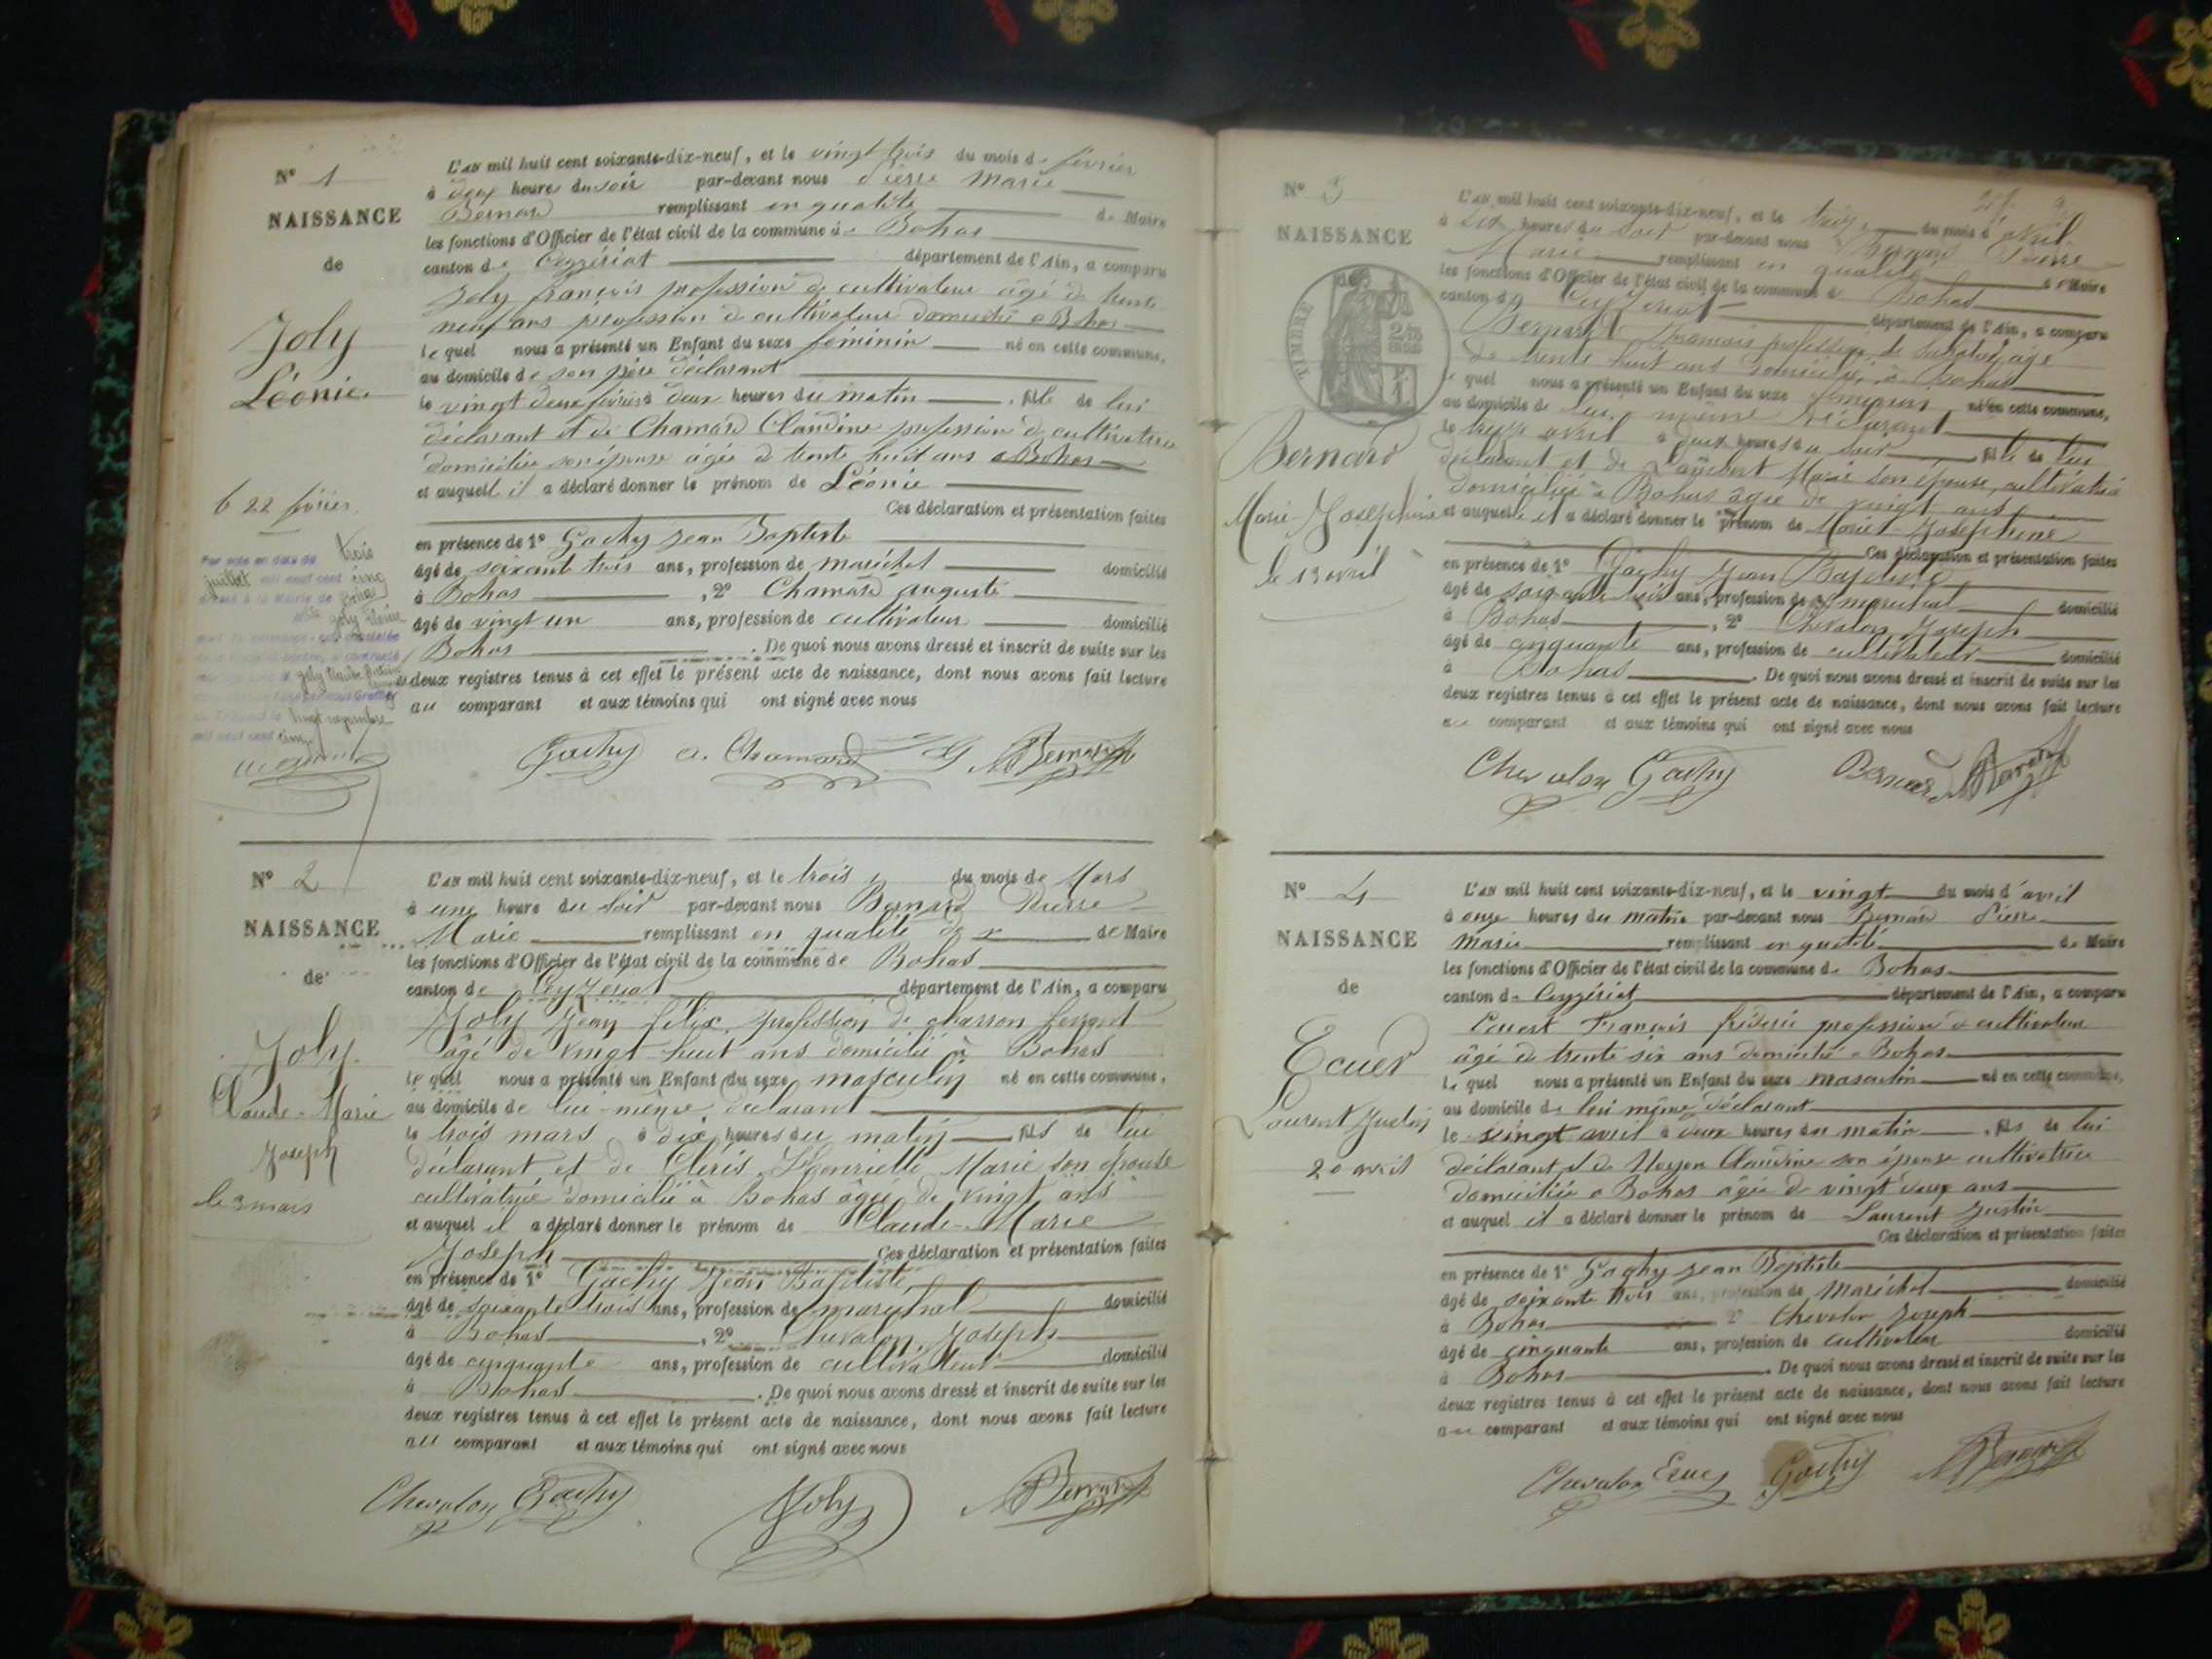 N° 1
NAISSANCE
de
Joly
Léonie
le 22 février
Par acte en date du trois
juillet mil neuf cent cinq
L'an mil huit cent soixante-dix-neuf, et le vingt trois du mois de février
à deux heures du soir par-devant nous Pierre Marie
Bernard remplissant en qualité de Maire
les fonctions d'Officier de l'état civil de la commune de Bohas
canton de Ceyzériat département de l'Ain, a comparu
Joly françois profession de cultivateur âgé de trente
neuf ans profession de cultivateur domicilié à Bohas
lequel nous a présenté un Enfant du sexe féminin né en cette commune,
au domicile de son père déclarant
le vingt deux février à deux heures du matin , fille de lui
déclarant et de Chamard Claudine profession de cultivatrice
domiciliée son épouse âgée de trente huit ans à Bohas
et auquel il a déclaré donner le prénom de Léonie
Ces déclaration et présentation faites
en présence de 1° Gachy Jean Baptiste
âgé de soixante trois ans, profession de maréchal domicilié
à Bohas , 2° Chamard auguste
âgé de vingt un ans, profession de cultivateur domicilié
Bohas . De quoi nous avons dressé et inscrit de suite sur les
deux registres tenus à cet effet le présent acte de naissance, dont nous avons fait lecture
au comparant et aux témoins qui ont signé avec nous
Gachy a. Chamard Bernard
N° 2
NAISSANCE
de
Joly
Claude-Marie
Joseph
le 3 mars
L'an mil huit cent soixante-dix-neuf, et le trois du mois de Mars
à une heure du soir par-devant nous Bernard Pierre
Marie remplissant en qualité de de Maire
les fonctions d'Officier de l'état civil de la commune de Bohas
canton de Ceyzeriat département de l'Ain, a comparu
Joly Jean félix, profession de charron
âgé de vingt-huit ans domicilié à Bohas
lequel nous a présenté un Enfant du sexe masculin né en cette commune,
au domicile de lui-même déclarant
le trois mars à dix heures du matin fils de lui
déclarant et de Cléris Henriette Marie son épouse
cultivatrice domicilié à Bohas âgée de vingt ans
et auquel il a déclaré donner le prénom de Claude-Marie
Joseph Ces déclaration et présentation faites
en présence de 1° Gachy Jean Baptiste
âgé de soixante trois ans, profession de maréchal domicilié
à Bohas , 2° Chevalon Joseph
âgé de cinquante ans, profession de cultivateur domicilié
à Bohas . De quoi nous avons dressé et inscrit de suite sur les
deux registres tenus à cet effet le présent acte de naissance, dont nous avons fait lecture
au comparant et aux témoins qui ont signé avec nous
Chevalon Gachy Joly Bernard
N° 3
NAISSANCE
TIMBRE
Bernard
Marie Joséphine
le 13 avril
L'an mil huit cent soixante-dix-neuf, et le treize du mois d'avril
à six heures du soir par-devant nous Bernard Pierre
Marie remplissant en qualité de Maire
les fonctions d'Officier de l'état civil de la commune de Bohas
canton de Ceyzeriat département de l'Ain, a comparu
Bernard François profession de âgé
de trente huit ans domicilié à Bohas
lequel nous a présenté un Enfant du sexe féminin né en cette commune,
au domicile de lui-même déclarant
le treize avril à deux heures du soir fille de lui
déclarant et de Lambert Marie son épouse, cultivatrice
domiciliée à Bohas âgée de vingt ans
et auquel il a déclaré donner le prénom de Marie-Joséphine
Ces déclaration et présentation faites
en présence de 1° Gachy Jean Baptiste
âgé de soixante trois ans, profession de maréchal domicilié
à Bohas , 2° Chevalon Joseph
âgé de cinquante ans, profession de cultivateur domicilié
à Bohas . De quoi nous avons dressé et inscrit de suite sur les
deux registres tenus à cet effet le présent acte de naissance, dont nous avons fait lecture
au comparant et aux témoins qui ont signé avec nous
Chevalon Gachy Bernard
N° 4
NAISSANCE
de
Ecuer
Laurent Justin
20 avril
L'an mil huit cent soixante-dix-neuf, et le vingt du mois d'avril
à onze heures du matin par-devant nous Bernard Pierre
Marie remplissant en qualité de Maire
les fonctions d'Officier de l'état civil de la commune de Bohas
canton de Ceyzériat département de l'Ain, a comparu
Ecuer François frédéric profession de cultivateur
âgé de trente six ans domicilié à Bohas
lequel nous a présenté un Enfant du sexe masculin né en cette commune,
au domicile de lui même déclarant
le vingt avril à deux heures du matin , fils de lui
déclarant et de Claudine son épouse cultivatrice
domiciliée à Bohas âgée de vingt deux ans
et auquel il a déclaré donner le prénom de Laurent Justin
Ces déclaration et présentation faites
en présence de 1° Gachy Jean Baptiste
âgé de soixante trois ans, profession de maréchal domicilié
à Bohas 2° Chevalon Joseph
âgé de cinquante ans, profession de cultivateur domicilié
à Bohas . De quoi nous avons dressé et inscrit de suite sur les
deux registres tenus à cet effet le présent acte de naissance, dont nous avons fait lecture
au comparant et aux témoins qui ont signé avec nous
Chevalon Ecuer Gachy Bernard